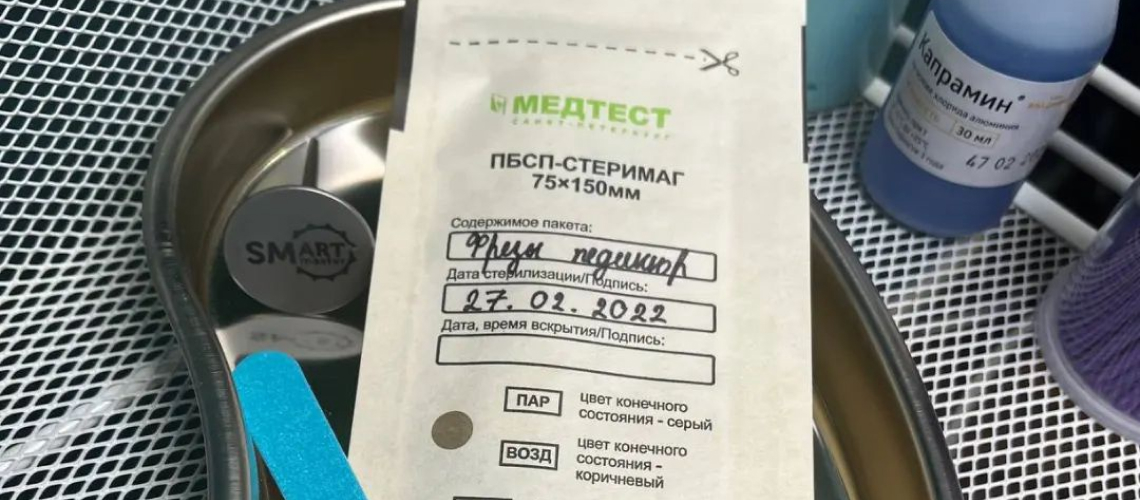 МЕДТЕСТ
САНКТ-ПЕТЕРБУРГ
ПБСП-СТЕРИМАГ
75×150мм
Содержимое пакета:
Фрезы педикюр
Дата стерилизации/Подпись:
27. 02. 2022
Дата, время вскрытия/Подпись:
ПАР
цвет конечного
состояния - серый
ВОЗД
цвет конечного
состояния -
коричневый
SMART
Капрамин
хлорида алюминия
30 мл